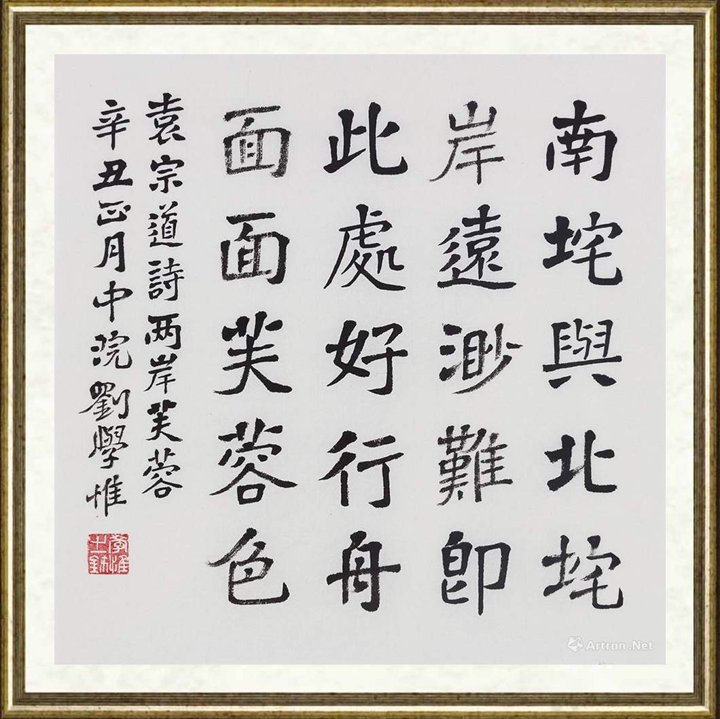 南垞與北垞
岸遠渺難即
此處好行舟
面面芙蓉色
袁宗道詩两岸芙蓉
辛丑正月中浣劉學惟
Artron.Net